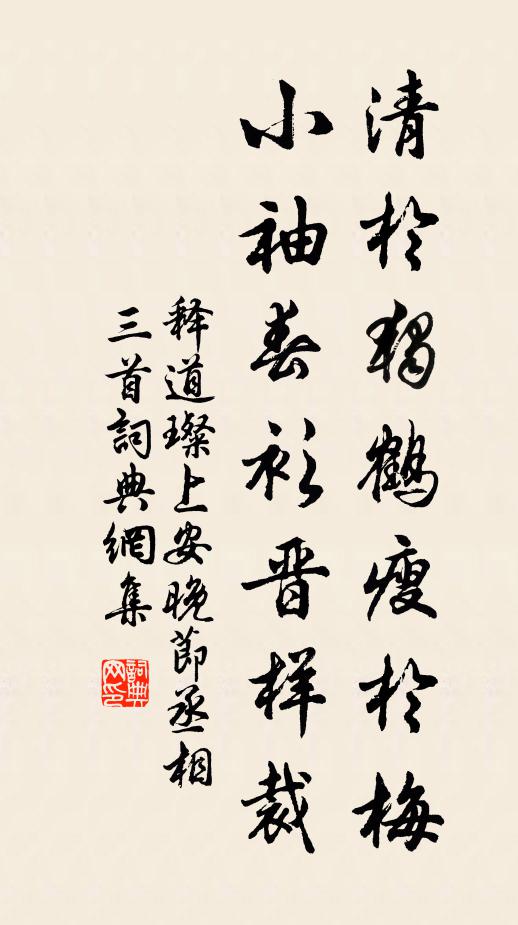 清於独鶴瘦於梅
小袖春衫晋样裁
释道璨上安晚節丞相
三首詞典網集
詞典网印